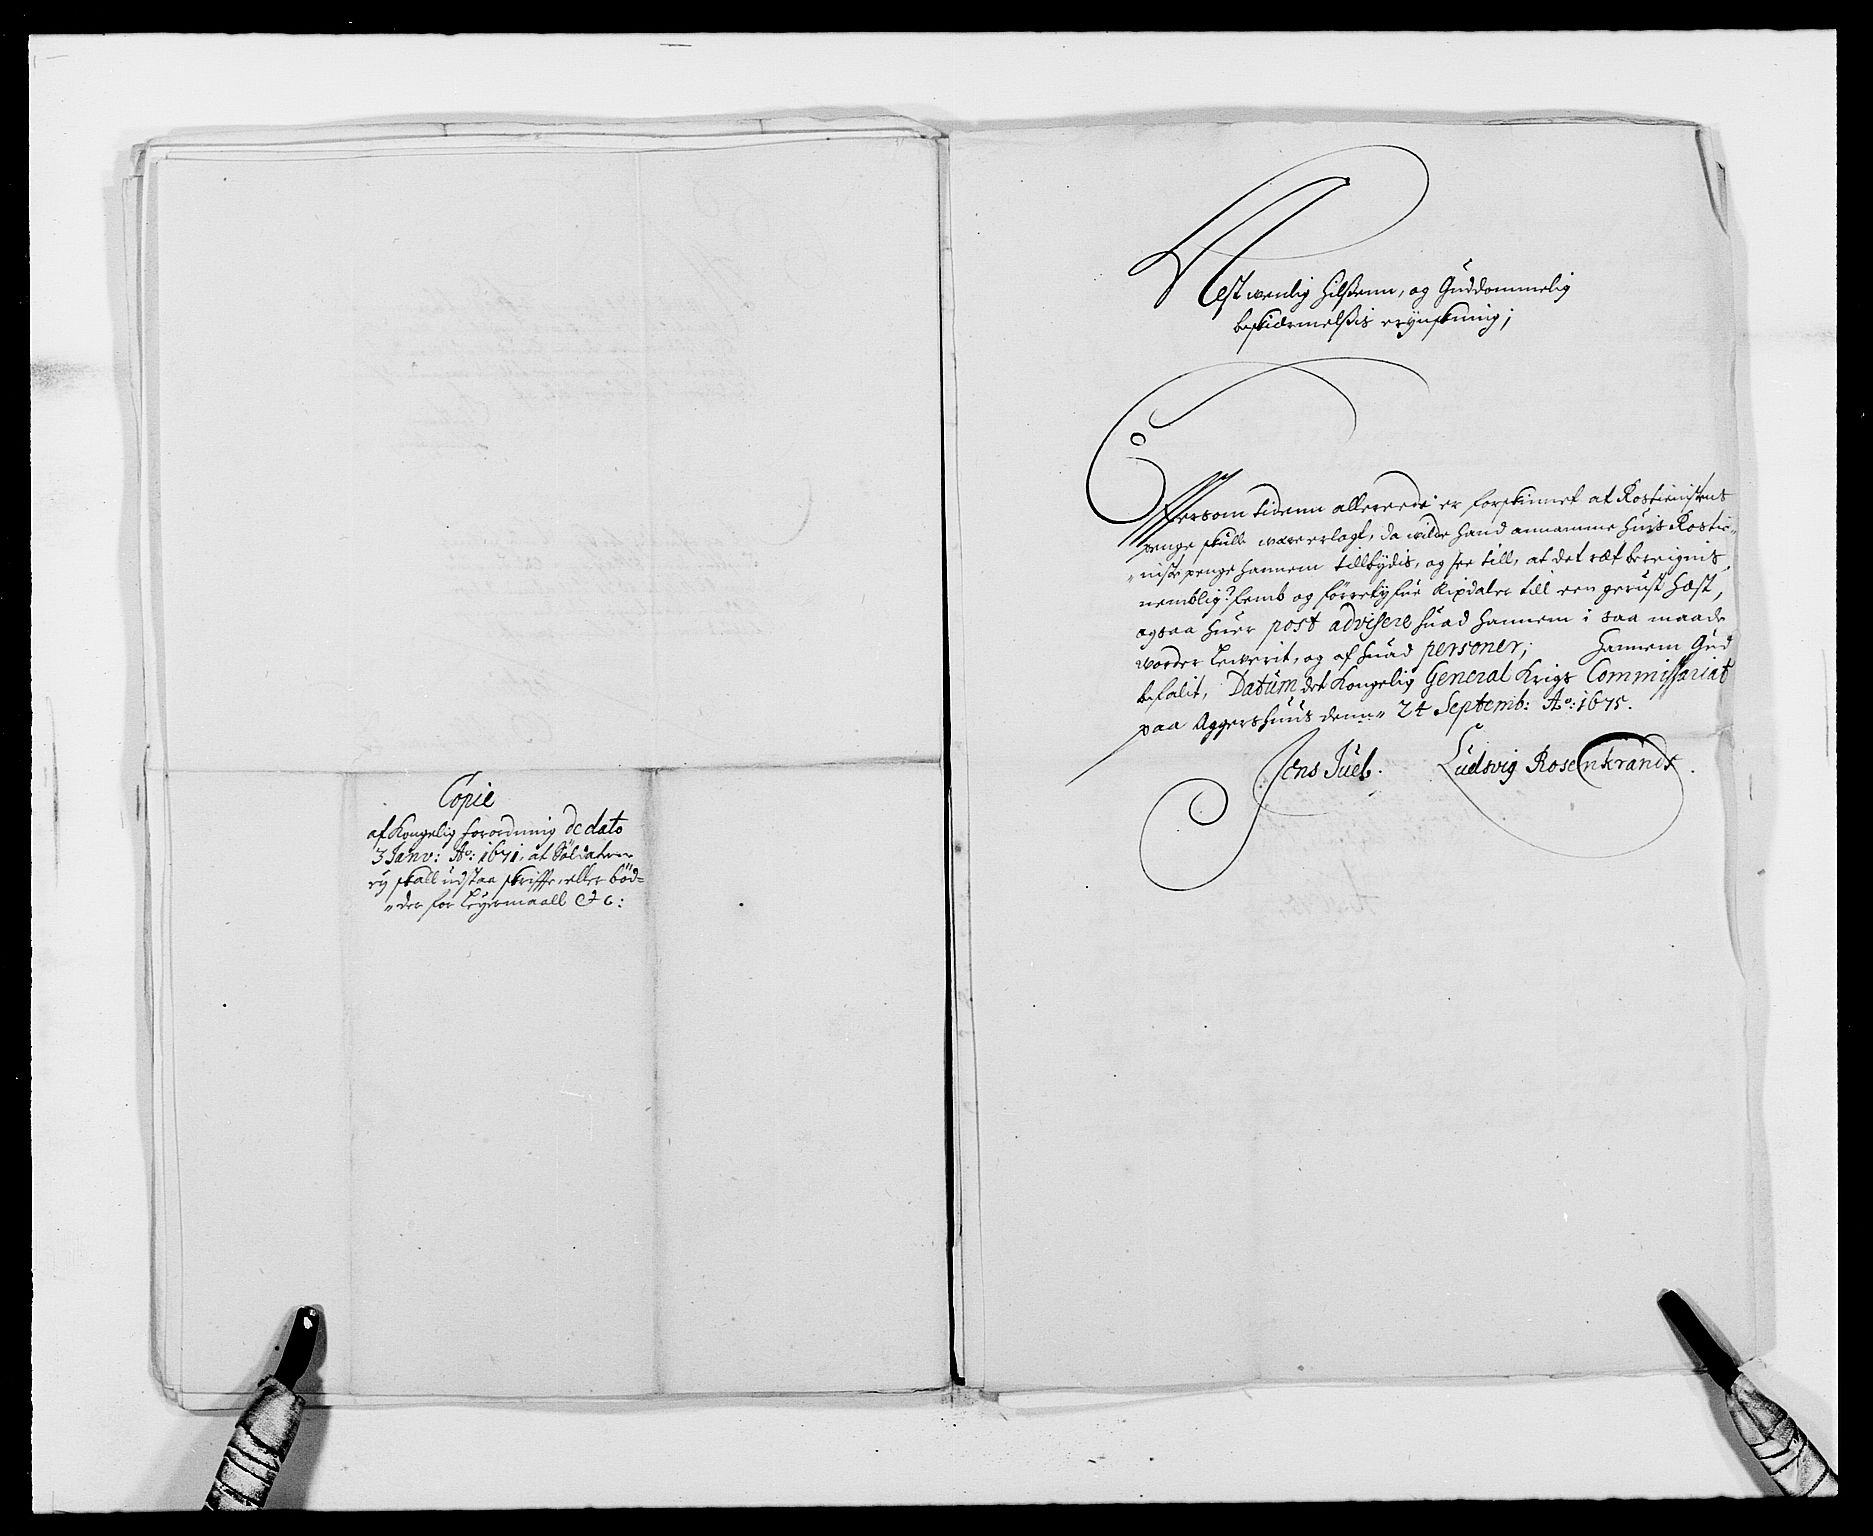 Copie
af Kongelig forordning de dato
3 Janv: Ao: 1671, at Soldaterne
ey skall udstaa skriffte, eller bød=
"der for Leyermaall etc:
Nest venlig hilßenn, og Guddommelig
beskiermelßis erynskning;
Efftersom tidenn allereede er forskinnet at Rostienistens
penge skulle være erlagt, da wilde hand annamme huis Rostie=
"niste penge hannem tillbydis, og see till, at det ræt beregnis
nemblig: femb og førretyfue Rixdaler till een gerust Hæst,
ogsaa huer post advisere huad hannem i saa maade
worder Leverit, og af huad personer; Hannem Gud
befalit, Datum det Kongelig General Krigs Commissariat
paa Aggershuus denn 24 Septemb: Ao: 1675.
Jens Juel. Ludsvig Rosenkrandt.